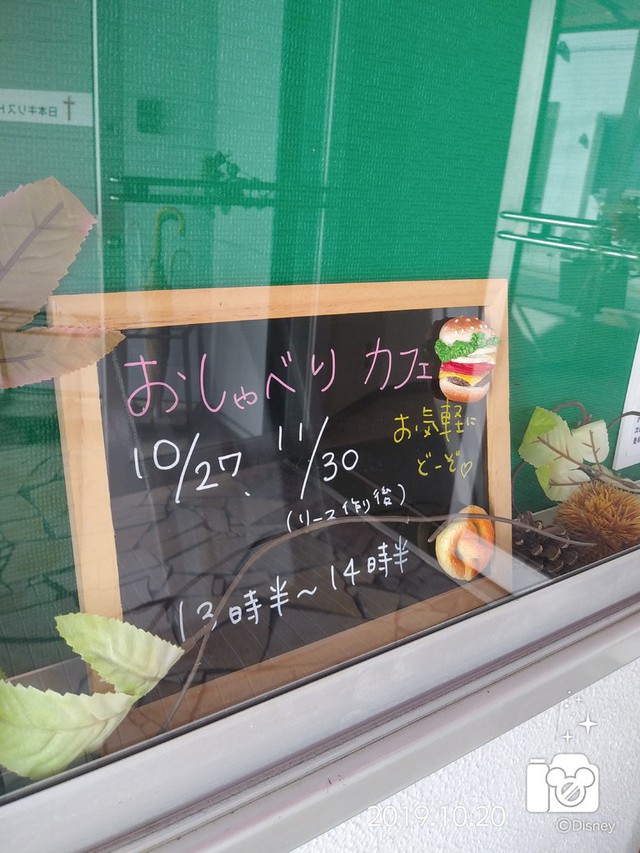 日本キリスト
おしゃべり カフェ
10/27. 11/30
お気軽に
どーぞ♡
(リース作り後)
13時半～14時半
2019.10.20
©Disney